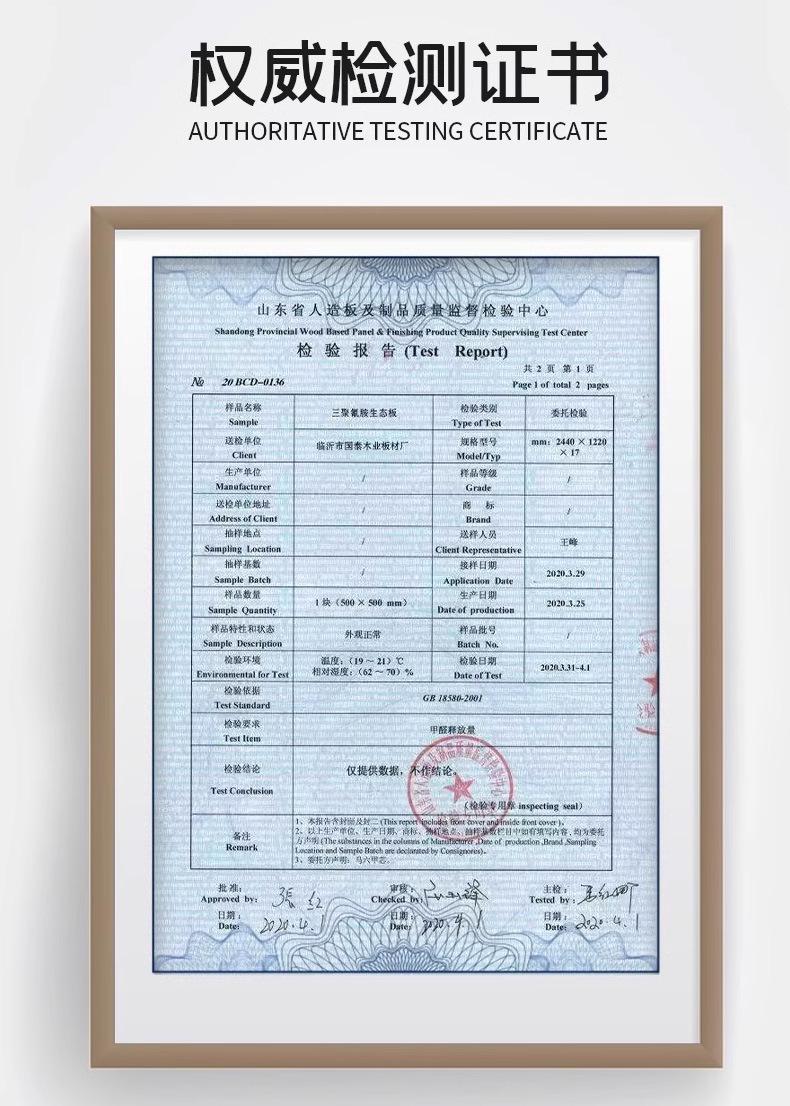 权威检测证书
AUTHORITATIVE TESTING CERTIFICATE
山东省人造板及制品质量监督检验中心
Shandong Provincial Wood Based Panel & Finishing Product Quality Supervising Test Center
检 验 报 告 (Test Report)
共 2 页 第 1 页
№ 20 BCD-0136
Page 1 of total 2 pages
样品名称 三聚氰胺生态板 检验类别 委托检验
Sample Type of Test
送检单位 临沂市国泰木业板材厂 规格型号 mm: 2440 × 1220 × 17
Client Model/Typ
生产单位 / 样品等级 /
Manufacturer Grade
送检单位地址 / 商 标 /
Address of Client Brand
抽样地点 / 送样人员 王峰
Sampling Location Client Representative
抽样基数 / 接样日期 2020.3.29
Sample Batch Application Date
样品数量 1 块 (500 × 500 mm) 生产日期 2020.3.25
Sample Quantity Date of production
样品特性和状态 外观正常 样品批号 /
Sample Description Batch No.
检验环境 温度:(19 ~ 21) ℃ 检验日期 2020.3.31-4.1
Environmental for Test 相对湿度:(62 ~ 70) % Date of Test
检验依据 GB 18580-2001
Test Standard
检验要求 甲醛释放量
Test Item
检验结论 仅提供数据,不作结论。
Test Conclusion
(检验专用章 inspecting seal)
备注
Remark
1、本报告含封面及封二 (This report includes front cover and inside front cover)。
2、以上生产单位、生产日期、商标、抽样地点、抽样基数栏目中如有填写内容,均为委托
方声明 (The substances in the columns of Manufacturer ,Date of production ,Brand ,Sampling
Location and Sample Batch are declarated by Consignores)。
3、委托方声明:马六甲芯。
批准: 张红 审核: 主检:
Approved by: Checked by: Tested by:
日期: 2020.4.1 日期: 2020.4.1 日期: 2020.4.1
Date: Date: Date: